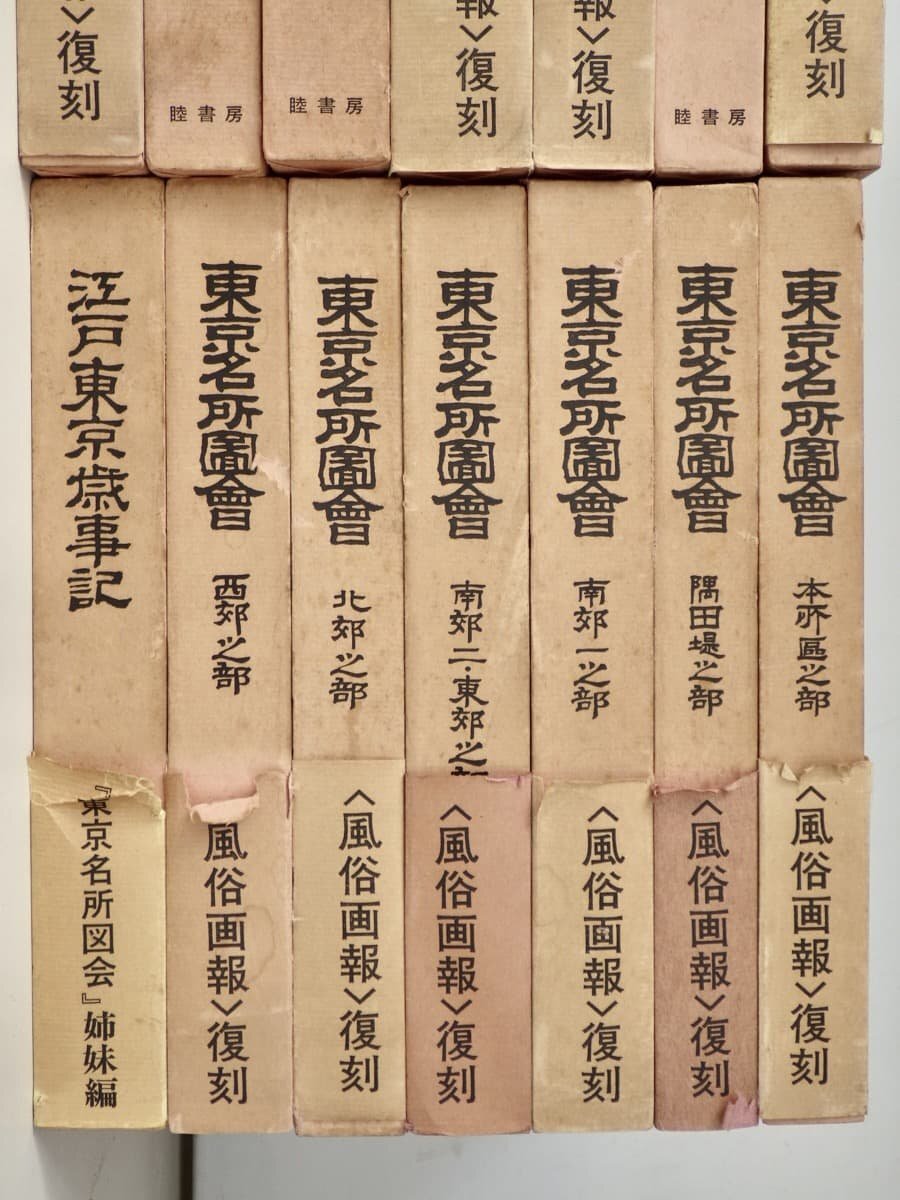 復刻
睦書房
報〉復刻
報〉復刻
睦書房
睦書房
〉復刻
東京名所圖會
本所區之部
〈風俗画報〉復刻
東京名所圖會
隅田堤之部
〈風俗画報〉復刻
東京名所圖會
南郊一之部
〈風俗画報〉復刻
東京名所圖會
南郊二・東郊之部
〈風俗画報〉復刻
東京名所圖會
北郊之部
〈風俗画報〉復刻
東京名所圖會
西郊之部
風俗画報〉復刻
江戸東京歳事記
『東京名所図会』姉妹編